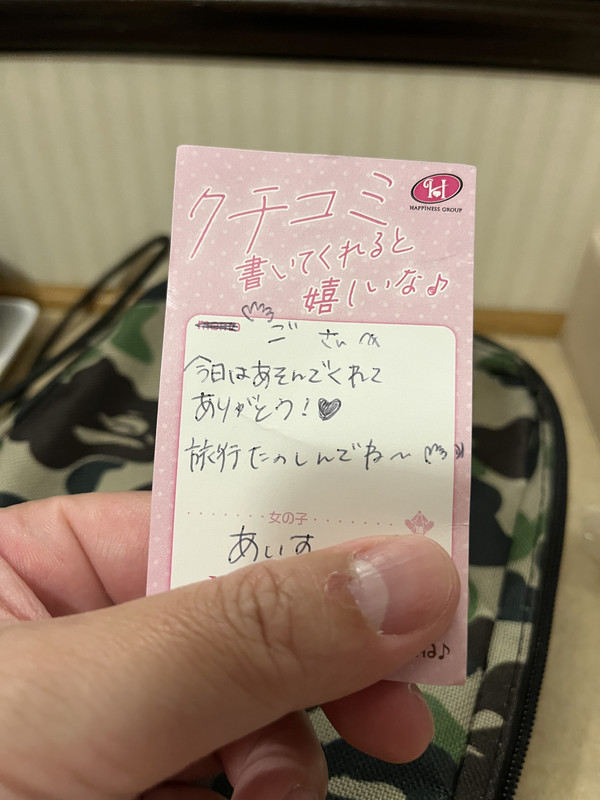 クチコミ
H
HAPPINESS GROUP
書いてくれると
嬉しいな♪
ご さんへ
今日はあそんでくれて
ありがとう!♥
旅行たのしんでね〜
女の子
あいす